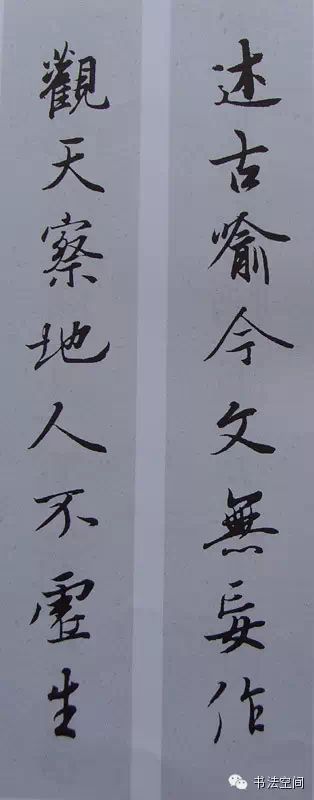 述古喻今文無妄作
觀天察地人不虛生
书法空间